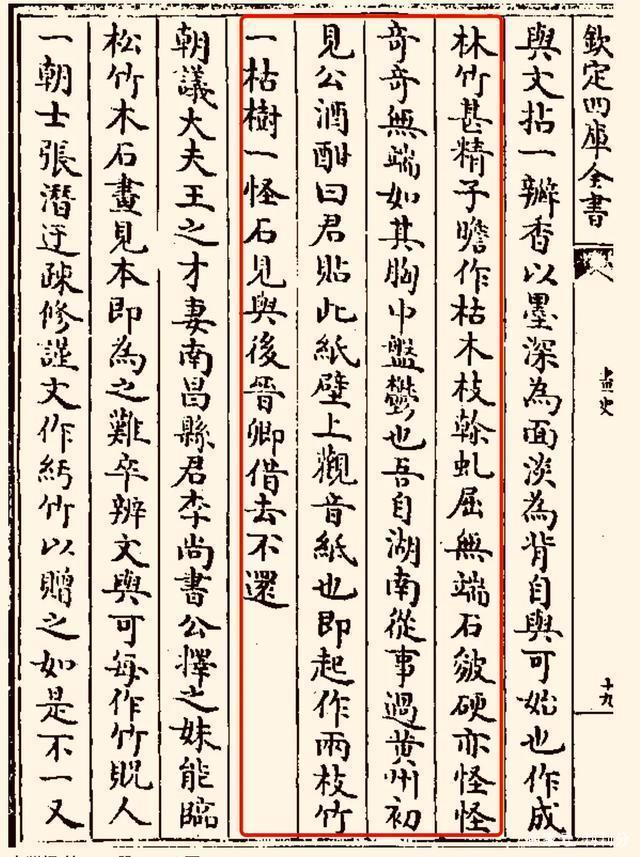 欽定四庫全書
畫史
十九
與文拈一瓣香以墨深為面淡為背自與可始也作成
林竹甚精子瞻作枯木枝榦虬屈無端石皴硬亦怪怪
奇奇無端如其胸中盤鬱也吾自湖南從事過黄州初
見公酒酣曰君貼此紙壁上觀音紙也即起作兩枝竹
一枯樹一怪石見與後晉卿借去不還
朝議大夫王之才妻南昌縣君李尚書公擇之妹能臨
松竹木石畫見本即為之難卒辨文與可每作竹貺人
一朝士張潛迂疎修謹文作紆竹以贈之如是不一又